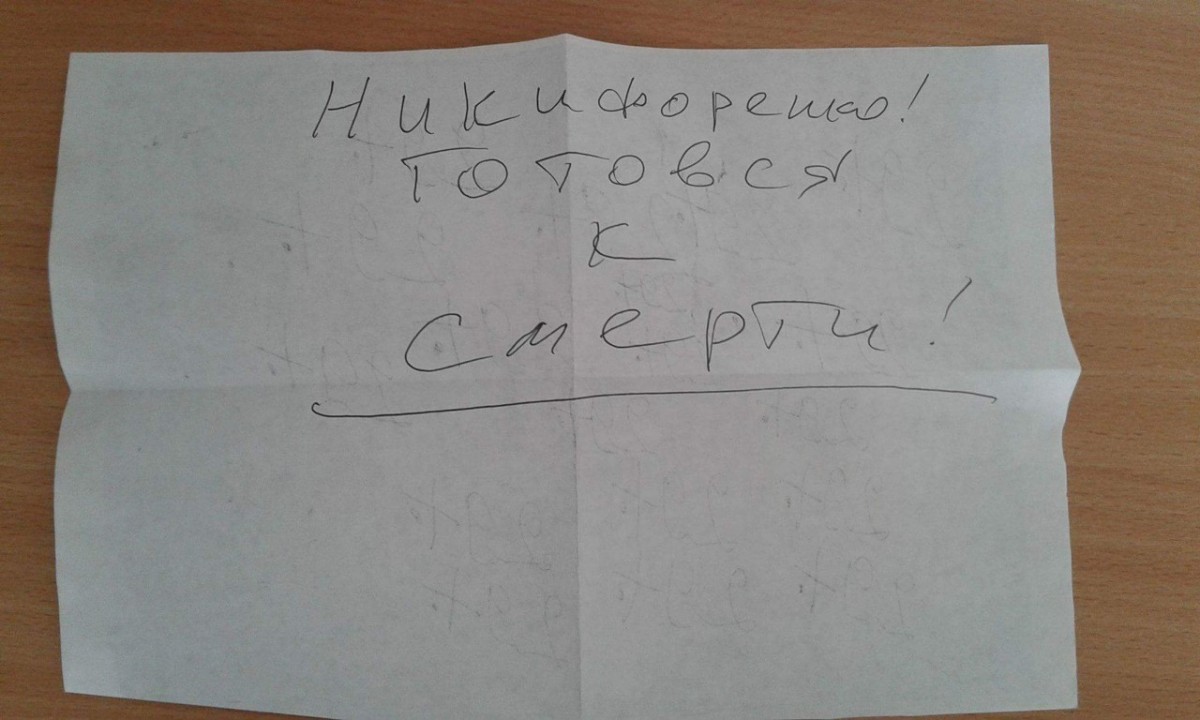 Никифоренко!
Готовся
к
смерти!